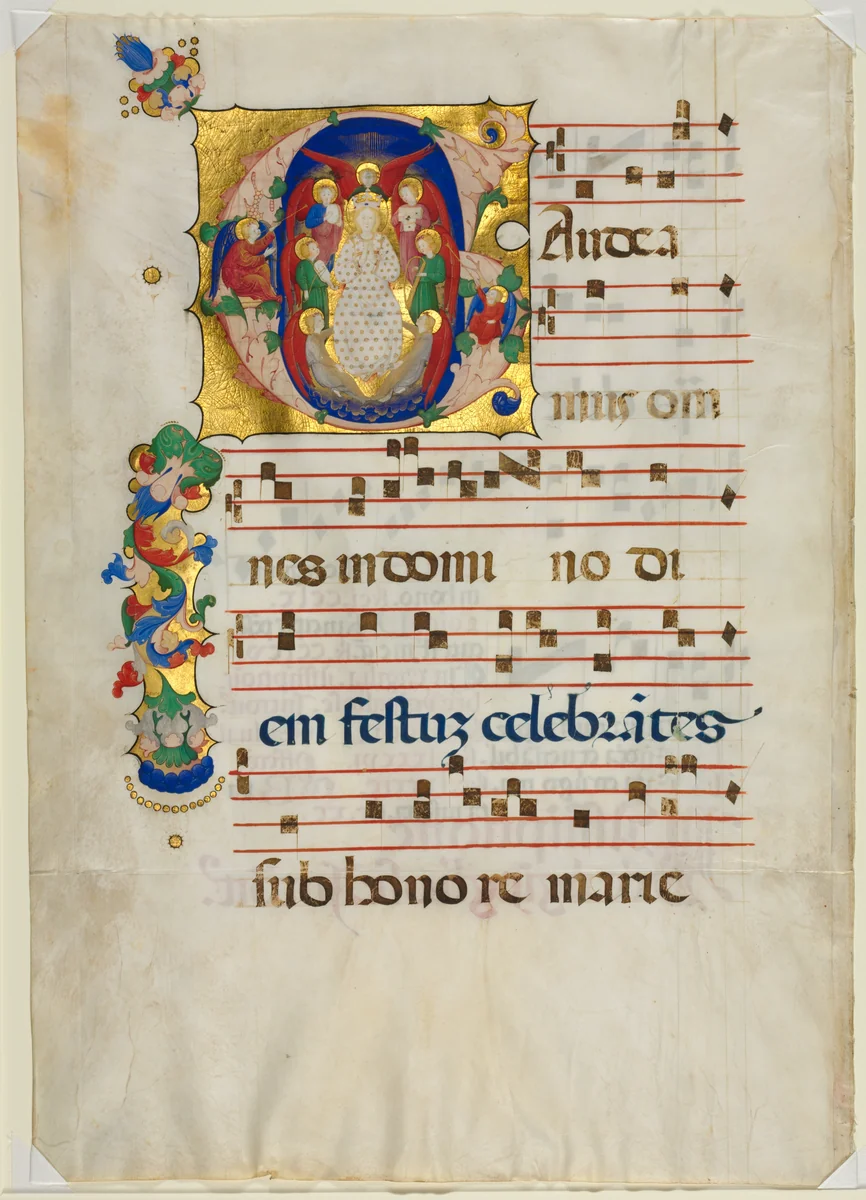 GAudea
mus om
nes in domi no di
em festuʒ celebrãtes
sub hono re marie